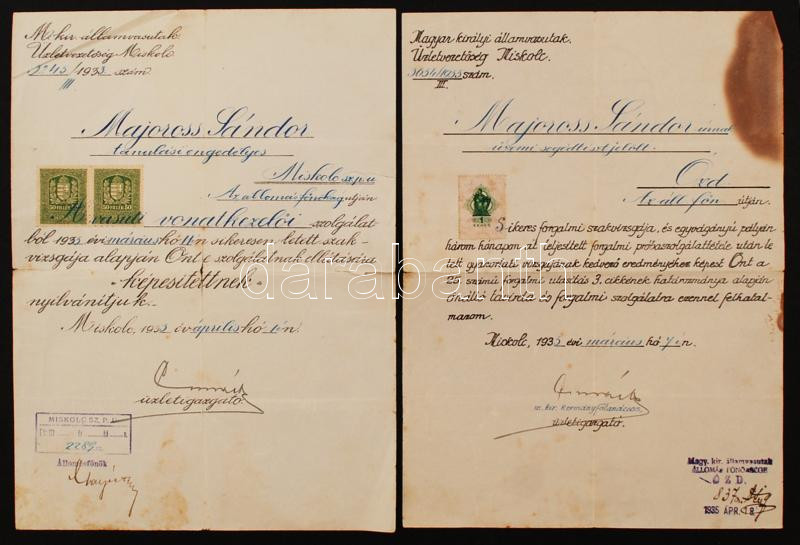 M. kir. államvasutak
Üzletvezetőség Miskolc
/1933 szám
III.
Majoross Sándor
tanulási engedélyes
Miskolc sz.p.u
Az állomásfőnökség utján
A vasuti vonatkezelői szolgálat
ból 1933 évi március hó 11-n sikeresen letett szak-
vizsgája alapján Önt e szolgálatnak ellátására
-képesítettnek-
nyilvánítjuk.
Miskolc, 1933 év április hó 1-n.
üzletigazgató.
MISKOLC SZ. P. U.
2289
Állomásfőnök
Magyar királyi államvasutak.
Üzletvezetőség Miskolc.
5654/1935 szám.
III.
Majoross Sándor úrnak
üzemi segédtisztjelölt.
Ózd
Az áll. főn. utján.
1
Sikeres forgalmi szakvizsgája, és egyvágányú pályán
három hónapon át teljesített forgalmi próbaszolgálattétele után le
tett gyakorlati vizsgájának kedvező eredményéhez képest Önt a
25. számú forgalmi utasítás 3. cikkének határozmánya alapján
önálló távirda és forgalmi szolgálatra ezennel felhatal-
mazom.
Miskolc, 1935 évi március hó 7-én.
m. kir. kormányfőtanácsos,
üzletigazgató.
Magy. kir. államvasutak
ÁLLOMÁSFŐNÖKSÉGE
ÓZD.
837
1935 ÁPR.
darabanth